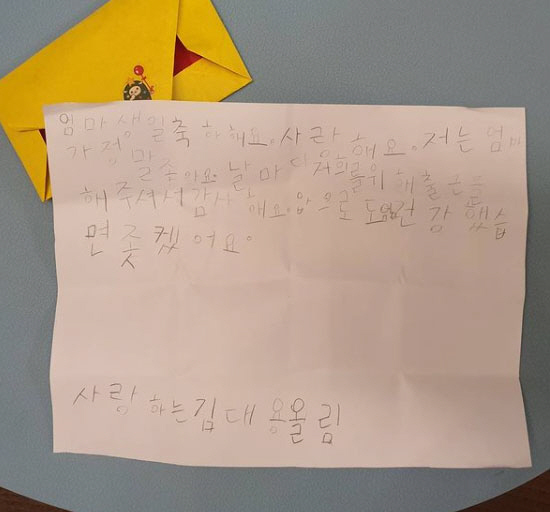 엄마생일축하해요.사라해요.저는엄마
가정말좋아요.날마다저희를위해출근을
해주셔서감사해요.앞으로도엄건강했습
면좃켔어요.
사랑하는김대용올림